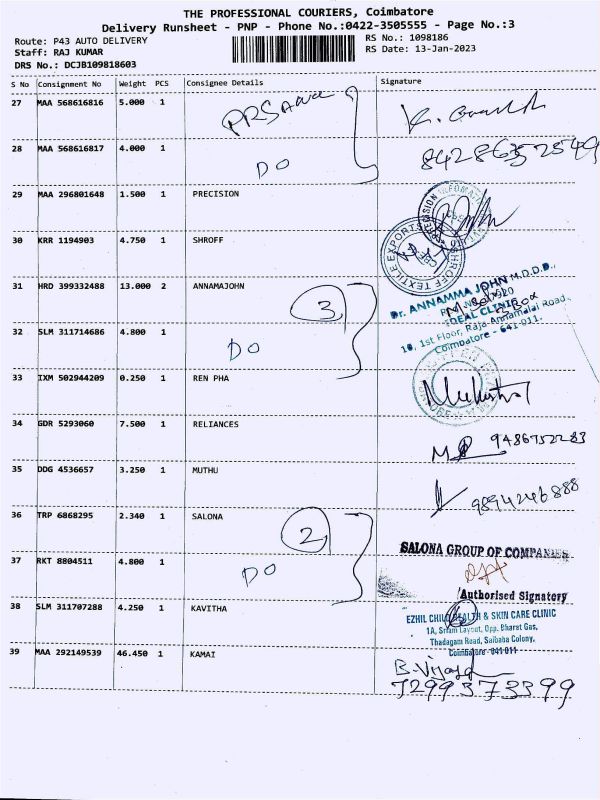 THE PROFESSIONAL COURIERS, Coimbatore
Delivery Runsheet - PNP - Phone No.:0422-3505555 - Page No.:3
Route: P43 AUTO DELIVERY
RS No.: 1098186
Staff: RAJ KUMAR
RS Date: 13-Jan-2023
DRS No.: DCJB109818603
S No Consignment No Weight PCS Consignee Details Signature
27 MAA 568616816 5.000 1
28 MAA 568616817 4.000 1 DO 84286352549
29 MAA 296801648 1.500 1 PRECISION
30 KRR 1194903 4.750 1 SHROFF
SHROFF TEXTILE EXPORTS
31 HRD 399332488 13.000 2 ANNAMAJOHN
Dr. ANNAMMA JOHN M.D.D.D.,
IDEAL CLINIC
10, 1st Floor, Raja Annamalai Road,
Coimbatore - 641-011.
3
32 SLM 311714686 4.800 1 DO
33 IXM 502944209 0.250 1 REN PHA
34 GDR 5293060 7.500 1 RELIANCES 9486752283
35 DDG 4536657 3.250 1 MUTHU 9894246888
36 TRP 6868295 2.340 1 SALONA 2
SALONA GROUP OF COMPANIES
37 RKT 8804511 4.800 1 DO
Authorised Signatory
38 SLM 311707288 4.250 1 KAVITHA
EZHIL CHILD HEALTH & SKIN CARE CLINIC
1A, Sriram Layout, Opp. Bharat Gas,
Thadagam Road, Saibaba Colony,
Coimbatore - 641 011
39 MAA 292149539 46.450 1 KAMAI
7299373399